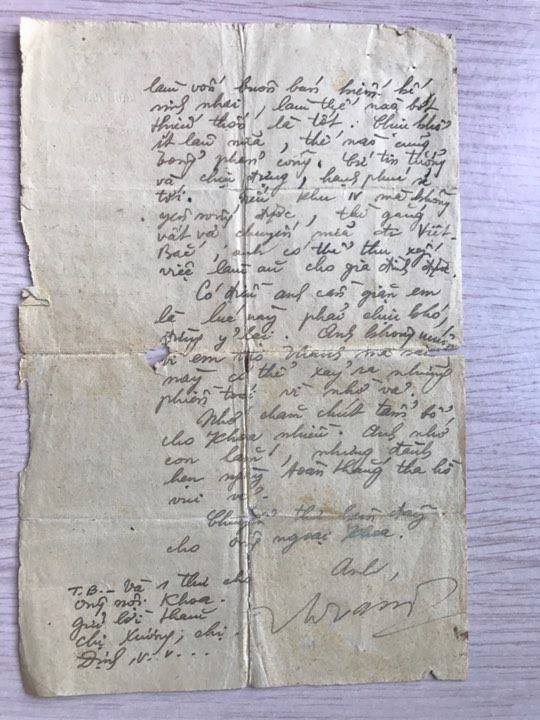 làm vốn buôn bán kiếm kế
sinh nhai, làm thế nào bớt
thiếu thốn là tốt. Chịu khổ
ít lâu nữa, thế nào cũng
tổng phản công. Cứ tin tưởng
và chịu đựng, hạnh phúc sẽ
tới. Nếu Khu IV mà không
yên sống được, thì gắng
vất vả chuyến nữa ra Việt-
Bắc, anh có thể thu xếp
việc làm ăn cho gia đình được.
Có điều anh căn dặn em
là lúc này phải chịu khó,
đừng ỷ lại. Anh không muốn
vì em là mà sau
này có thể xảy ra những
phiền toái vì nhờ vả.
Nhớ chăm chút tắm bổ
cho Khoa nhiều. Anh nhớ
con lắm, nhưng đành
hẹn ngày toàn thắng tha hồ
vui vẻ.
Chuyển thư bên đây
cho ông ngoại Khoa.
Anh,
T.B. - Và 1 thư cho
ông nội Khoa.
gửi lời thăm
chị Xương, chị
Định, v.v...